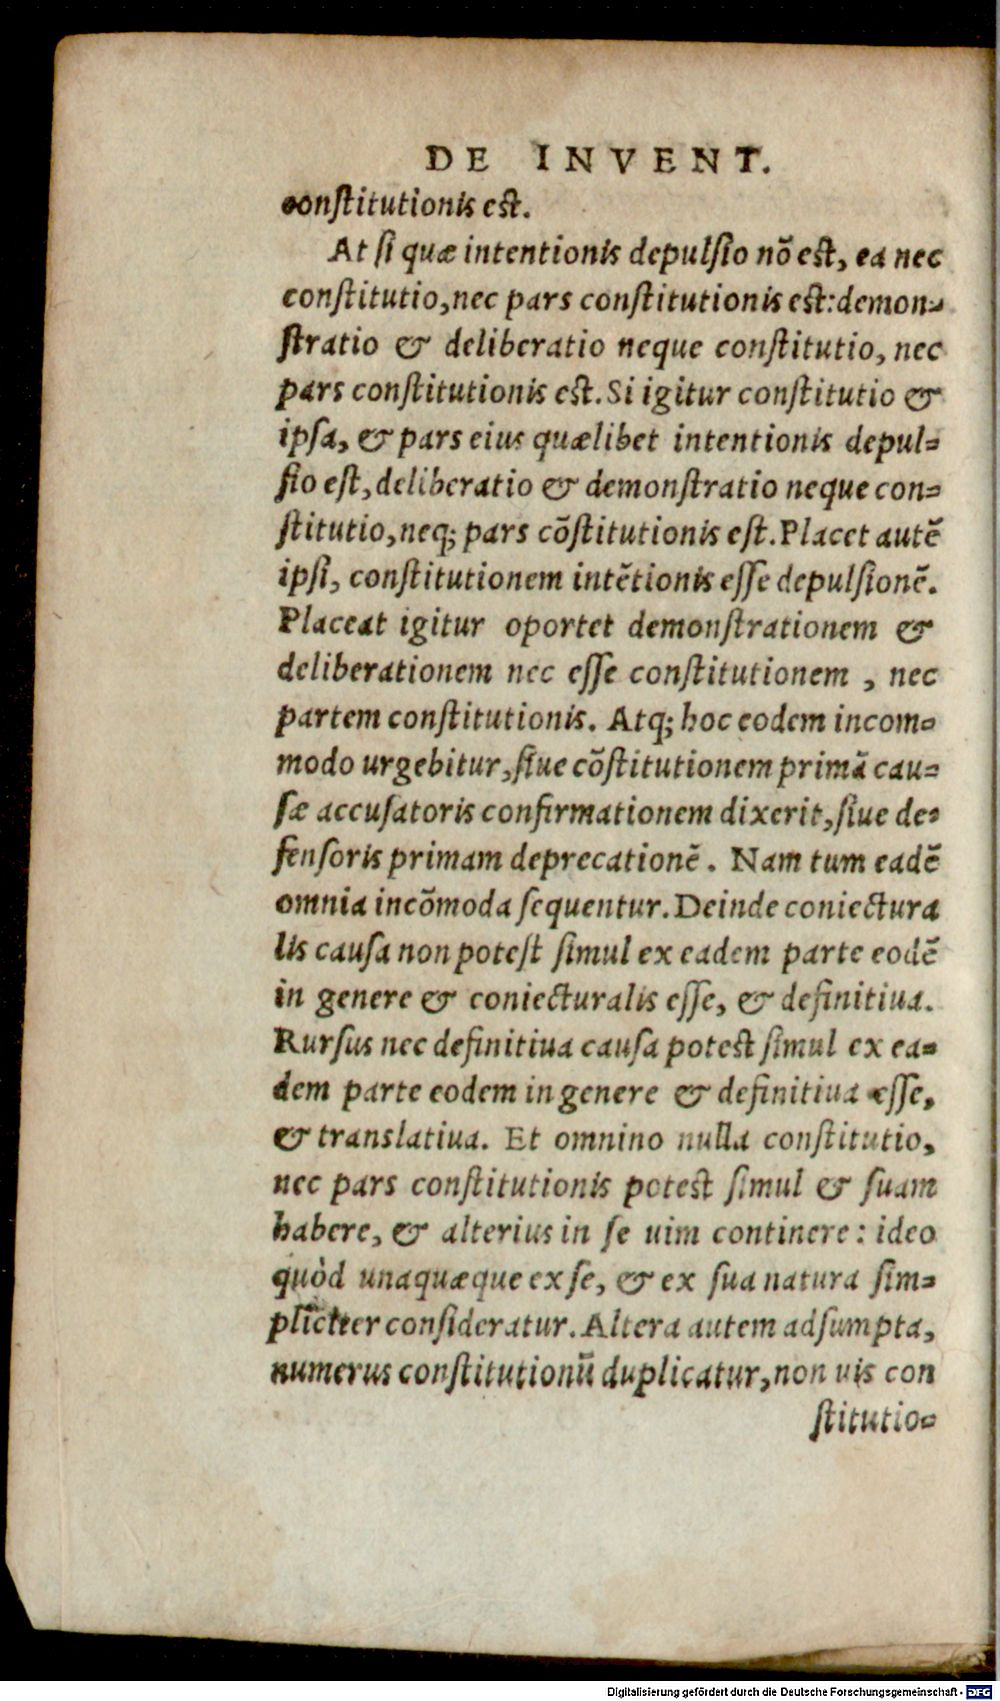 DE INVENT.
conſtitutionis eſt.
At ſi quæ intentionis depulſio nō eſt, ea nec
conſtitutio, nec pars conſtitutionis eſt: demon-
ſtratio & deliberatio neque conſtitutio, nec
pars conſtitutionis eſt. Si igitur conſtitutio &
ipſa, & pars eius quælibet intentionis depul-
ſio eſt, deliberatio & demonſtratio neque con-
ſtitutio, neq; pars cōſtitutionis eſt. Placet autē
ipſi, conſtitutionem intētionis eſſe depulſionē.
Placeat igitur oportet demonſtrationem &
deliberationem nec eſſe conſtitutionem, nec
partem conſtitutionis. Atq; hoc eodem incom-
modo urgebitur, ſiue cōſtitutionem primā cau-
ſæ accuſatoris confirmationem dixerit, ſiue de-
fenſoris primam deprecationē. Nam tum eadē
omnia incōmoda ſequentur. Deinde coniectura
lis cauſa non poteſt ſimul ex eadem parte eodē
in genere & coniecturalis eſſe, & definitiua.
Rurſus nec definitiua cauſa poteſt ſimul ex ea-
dem parte eodem in genere & definitiua eſſe,
& translatiua. Et omnino nulla conſtitutio,
nec pars conſtitutionis poteſt ſimul & ſuam
habere, & alterius in ſe uim continere: ideo
quòd unaquæque ex ſe, & ex ſua natura ſim-
pliciter conſideratur. Altera autem adſumpta,
numerus conſtitutionū duplicatur, non uis con
ſtitutio-
Digitalisierung gefördert durch die Deutsche Forschungsgemeinschaft - DFG